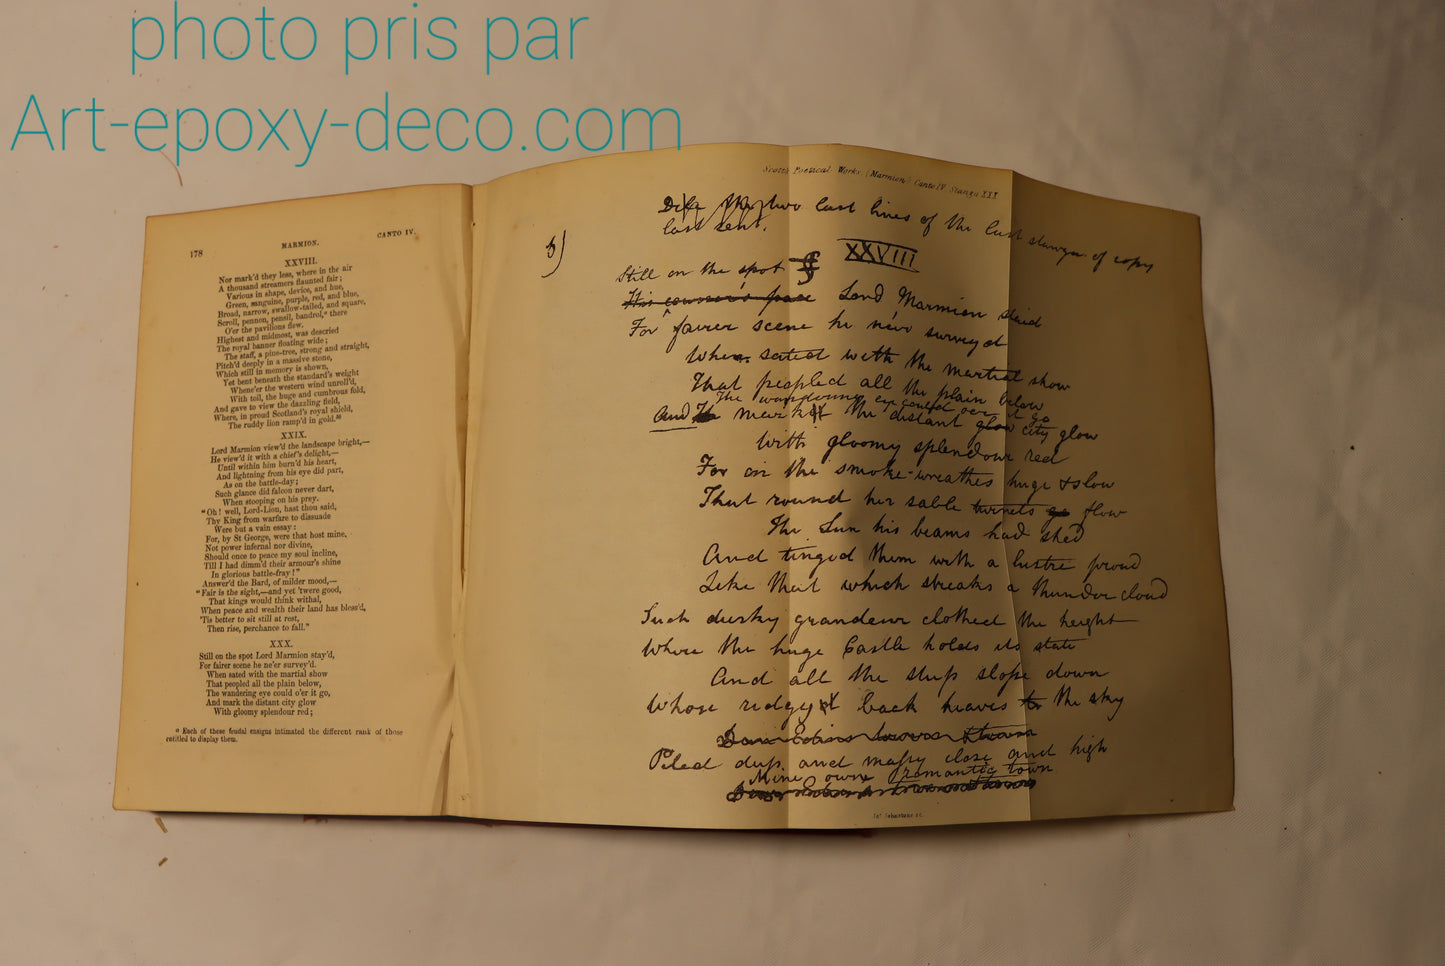 photo pris par
Art-epoxy-deco.com
178
MARMION.
CANTO IV.
XXVIII.
Nor mark'd they less, where in the air
A thousand streamers flaunted fair;
Various in shape, device, and hue,
Green, sanguine, purple, red, and blue,
Broad, narrow, swallow-tailed, and square,
Scroll, pennon, pensil, bandrol,ᵃ there
O'er the pavilions flew.
Highest and midmost, was descried
The royal banner floating wide;
The staff, a pine-tree, strong and straight,
Pitch'd deeply in a massive stone,
Which still in memory is shown,
Yet bent beneath the standard's weight
Whene'er the western wind unroll'd,
With toil, the huge and cumbrous fold,
And gave to view the dazzling field,
Where, in proud Scotland's royal shield,
The ruddy lion ramp'd in gold.
XXIX.
Lord Marmion view'd the landscape bright,—
He view'd it with a chief's delight,—
Until within him burn'd his heart,
And lightning from his eye did part,
As on the battle-day;
Such glance did falcon never dart,
When stooping on his prey.
"Oh! well, Lord-Lion, hast thou said,
Thy King from warfare to dissuade
Were but a vain essay:
For, by St George, were that host mine,
Not power infernal nor divine,
Should once to peace my soul incline,
Till I had dimm'd their armour's shine
In glorious battle-fray!"
Answer'd the Bard, of milder mood,—
"Fair is the sight,—and yet 'twere good,
That kings would think withal,
When peace and wealth their land has bless'd,
'Tis better to sit still at rest,
Then rise, perchance to fall."
XXX.
Still on the spot Lord Marmion stay'd,
For fairer scene he ne'er survey'd.
When sated with the martial show
That peopled all the plain below,
The wandering eye could o'er it go,
And mark the distant city glow
With gloomy splendour red;
ᵃ Each of these feudal ensigns intimated the different rank of those
entitled to display them.
Scott's Poetical Works, (Marmion) Canto IV Stanza XXX
two last lines of the last stanza of copy
last sent.
5)
XXVIII
Still on the spot
His courser's pace Lord Marmion staid
For fairer scene he neer surveyd
When sated with the martial show
That peopled all the plain below
The wandering eye could oer it go
And mark the distant glow city glow
With gloomy splendour red
For on the smoke-wreathes huge & slow
That round her sable turrets flow
The Sun his beams had shed
And tinged them with a lustre proud
Like that which streaks a thunder cloud
Such dusky grandeur clothed the height
Where the huge Castle holds its state
And all the steep slope down
Whose ridgy back heaves to the sky
Piled deep and massy close and high
Mine own romantic town